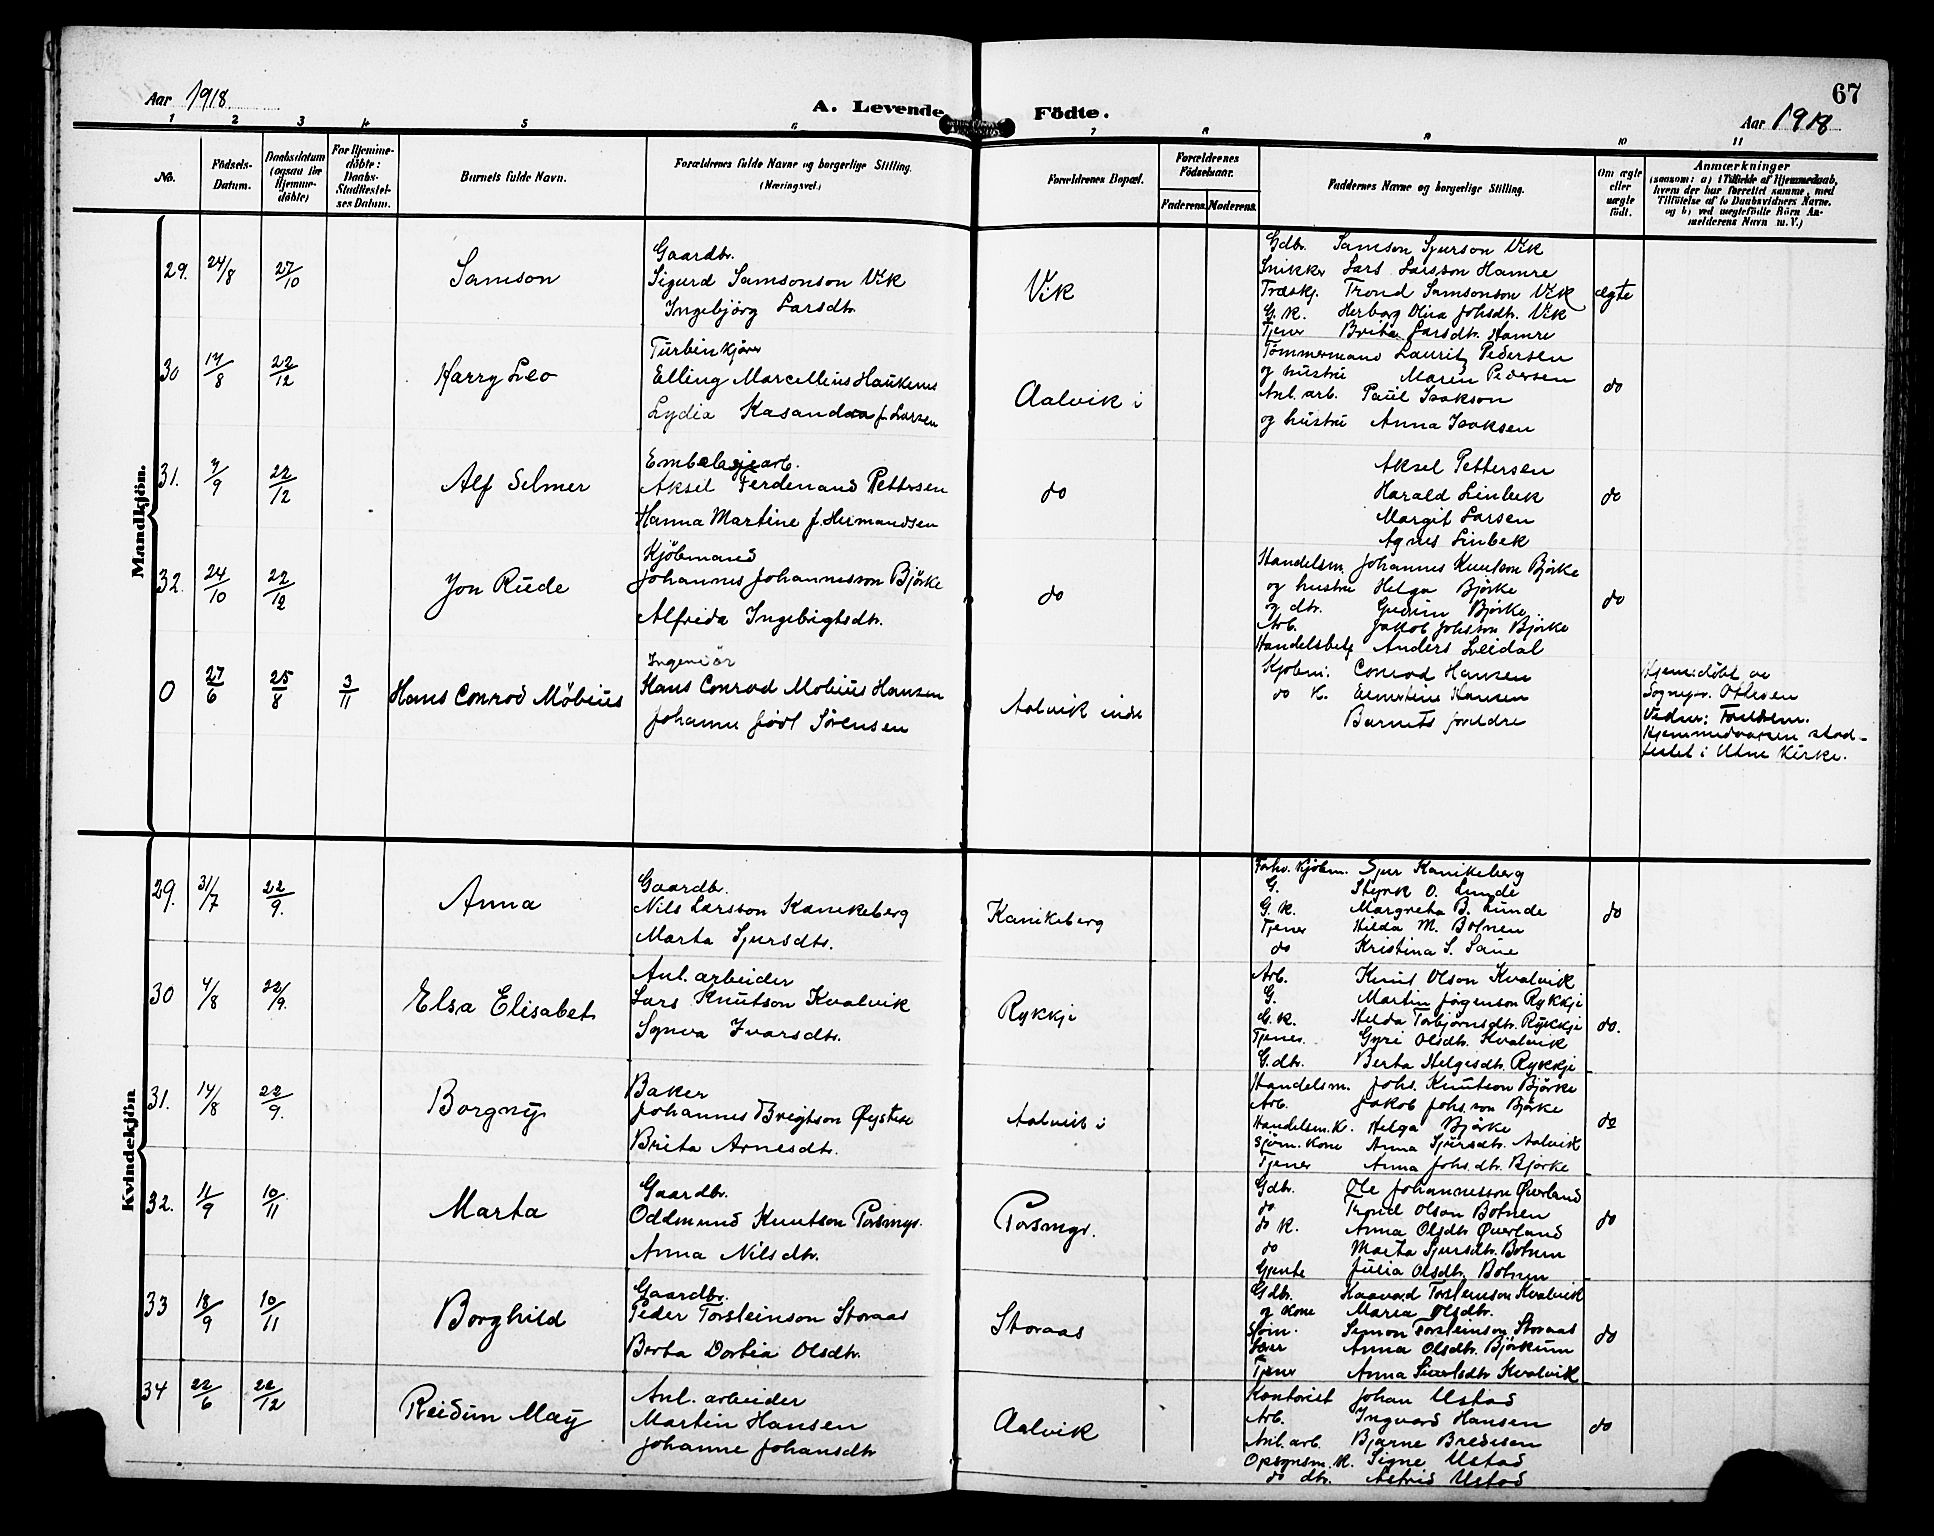 67
Aar 1918
A. Levende Födte.
Aar 1918
1 2 3 4 5 6 7 8 9 10 11
No.
Födsels-Datum.
Daabsdatum (ogsaa for Hjemme-döbte)
For Hjemme-döbte: Daabs-Stadfæstel-ses Datum.
Barnets fulde Navn.
Forældrenes fulde Navne og borgerlige Stilling.
(Næringsvei.)
Forældrenes Bopæl.
Forældrenes Födselsaar.
Faderens. Moderens.
Faddernes Navne og borgerlige Stilling.
Om ægte eller uægte födt.
Anmærkninger
(saasom: a) i Tilfælde af Hjemmedaab, hvem der har forrettet samme, med Tilföielse af to Daabsvidners Navne. og b) ved uægtefödte Börn An-melderens Navn m. V.)
Mandkjön.
29. 24/8 27/10 Samson
Gaardbr.
Sigurd Samsonson Vik
Ingebjörg Larsdtr.
Vik
Gdbr. Samson Sjurson Vik
Snikker Lars Larsson Hamre
Træskj. Trond Samsonson Vik
G. K. Herborg Olina Johsdtr. Vik
Tjener Brita Larsdtr. Hamre
ægte
30 14/8 22/12 Harry Leo
Turbinkjører
Elling Marcellius Haukenes
Lydia Kasandaa f. Larsen
Aalvik i
Tömmermand Lauritz Pedersen
og hustru Maren Pedersen
Anl. arb. Paul Isakson
og hustru Anna Isaksen
do
31. 7/9 22/12 Alf Selmer
Embalagearb.
Aksel Ferdenand Pettersen
Hanna Martine f. Hermandsen
do
Aksel Pettersen
Harald Linbek
Margit Larsen
Agnes Linbek
do
32. 24/10 22/12 Jon Rude
Kjöbmand
Johannes Johannesson Björke
Alfrida Ingebrigtsdtr.
do
Handelsm. Johannes Knutson Björke
og hustru Helga Björke
og dtr. Gudrun Björke
Arb. Jakob Johsson Björke
Handelsbetj Anders Leidal
do
0 27/6 25/8 3/11 Hans Conrod Möbius
Ingeniör
Hans Conrad Mobius Hansen
Johanne Sörensen
Aalvik indr
Kjöbm: Conrad Hansen
do K. Ernestine Hansen
Barnets foreldre
Hjemdöbt av
Sognepr. Oftesen
Vidner: Foreldrene.
Hjemmedaapen stad-
festet i Utne Kirke.
Kvindekjön
29. 31/7 22/9. Anna
Gaardbr.
Nils Larsson Kanikeberg
Marta Sjursdtr.
Kanikeberg
Forhv. Kjöbm. Sjur Kanikeberg
G. Styrk O. Lunde
G. K. Margreta B. Lunde
Tjener Hilda M. Botnen
do Kristina S. Saue
do
30 4/8 22/9. Elsa Elisabet
Anl. arbeider
Lars Knutson Kvalvik
Synva Ivarsdtr.
Rykkje
Arb. Knut Olson Kvalvik
G. Martin Jörgenson Rykkje
G. K. Helda Torbjörnsdtr. Rykkje
Tjener Gyri Olsdtr. Kvalvik
G. dtr. Berta Helgesdtr. Rykkje
do.
31. 14/8 22/9. Borgny
Baker
Johannes Brigtson Øystese
Brita Arnesdtr.
Aalvik i
Handelsm. Johs. Knutson Björke
Arb. Jakob Johs.son Björke
Handelsm. K. Helga Björke
Sjöm. Kone Anna Sjursdtr. Aalvik
Tjener Anna Johs.dtr. Björke
do
32. 11/9 10/11 Marta
Gaardbr.
Oddmund Knutson Porsmyr.
Anna Nilsdtr.
Porsmyr.
Gdbr. Ole Johannesson Øverland
do Trond Olson Botnen
do K. Anna Olsdtr. Øverland
do Marta Sjursdtr. Botnen
Gjente Julia Olsdtr. Botnen
do
33 18/9 10/11 Borghild
Gaardbr.
Peder Torsteinson Storaas
Berta Dortea Olsdtr.
Storaas
Gdbr. Haavard Torsteinson Kvalvik
og Kone Maria Olsdtr.
Sjöm. Simon Torsteinson Storaas
Anna Olsdtr. Björkum
Tjener Anna Sivertsdtr. Kvalvik
do
34 22/6 22/12 Reidun May
Anl. arbeider
Martin Hansen
Johanne Johansdtr
Aalvik
Kontorist Johan Ustad
Arb. Ingvard Hansen
Anl. arb. Bjarne Bredesen
Opsynsm. K. Signe Ustad
do dtr. Astrid Ustad
do